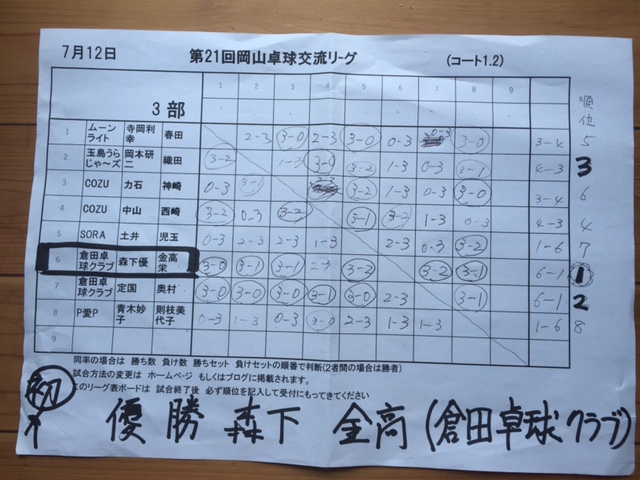 7月12日 第21回岡山卓球交流リーグ (コート1.2)
3部 1 2 3 4 5 6 7 8 9 順位
1 ムーンライト 寺岡利幸 春田 2-3 3-0 2-3 3-0 0-3 0-3 3-0 3-4 5
2 玉島うらじゃ～ズ 岡本研二 織田 3-2 1-3 3-0 3-2 1-3 0-3 3-1 4-3 3
3 COZU 力石 神崎 0-3 3-1 2-3 3-2 1-3 0-3 3-0 3-4 6
4 COZU 中山 西崎 3-2 0-3 3-2 3-1 3-2 1-3 0-3 4-3 4
5 SORA 土井 児玉 0-3 2-3 2-3 1-3 2-3 0-3 3-1 1-6 7
6 倉田卓球クラブ 森下優 金高栄 3-0 3-1 3-1 2-3 3-2 3-2 3-1 6-1 1
7 倉田卓球クラブ 定国 奥村 3-0 3-0 3-0 3-1 3-0 2-3 3-1 6-1 2
8 P愛P 青木妙子 則枝美代子 0-3 1-3 0-3 3-0 2-3 1-3 1-3 1-6 8
9
同率の場合は 勝ち数 負け数 勝ちセット 負けセットの順番で判断(2者間の場合は勝者)
試合方法の変更は ホームページ もしくはブログに掲載されます。
このリーグ表ボードは 試合終了後 必ず順位を記入して受付にもってきてください
初
優勝 森下 金高 (倉田卓球クラブ)